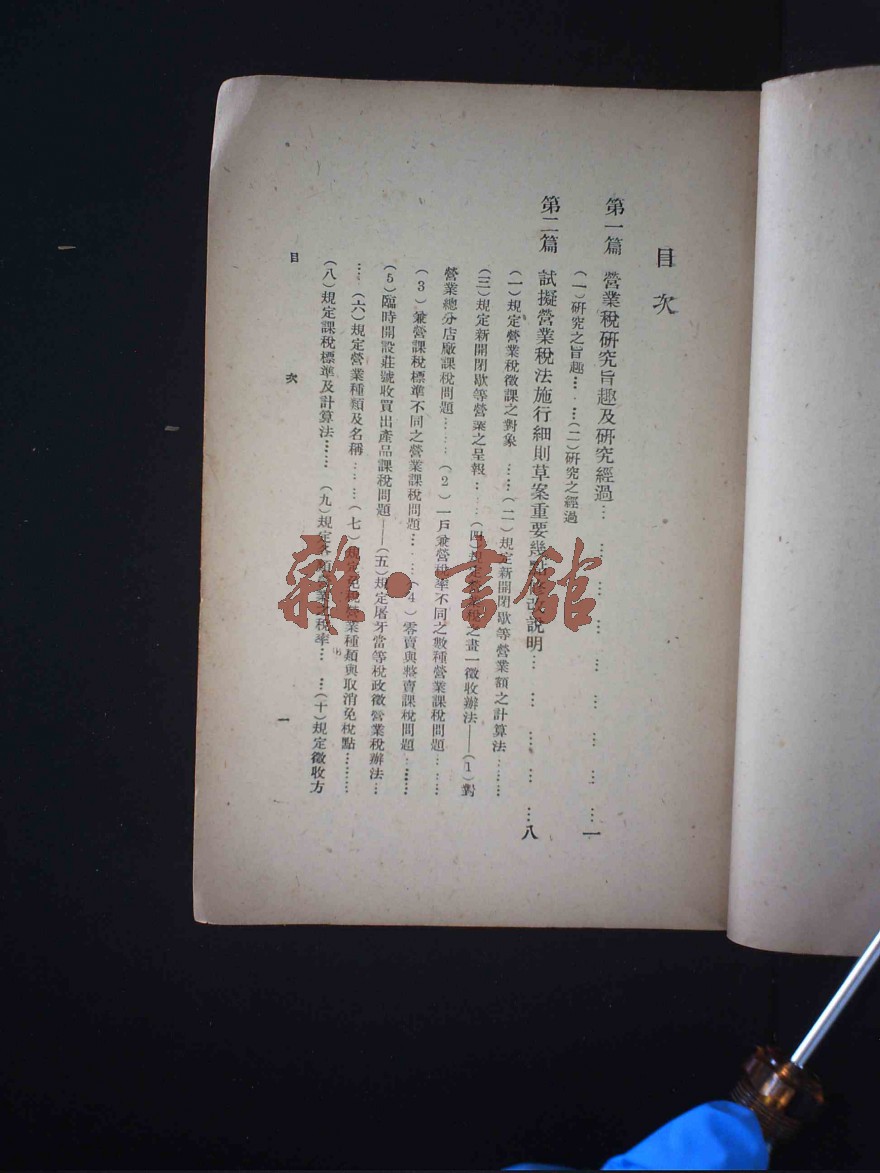 目次
第一篇 營業稅研究旨趣及研究經過… … … … … … … …一
(一)研究之旨趣… … …(二)研究之經過
第二篇 試擬營業稅法施行細則草案重要幾點 說明… … … … …八
(一)規定營業稅徵課之對象 ……(二)規定新開閉歇等營業額之計算法………
(三)規定新開閉歇等營業之呈報………(四)規定 稅之畫一徵收辦法——(1)對
營業總分店廠課稅問題………(2)一戶兼營稅率不同之數種營業課稅問題……
(3)兼營課稅標準不同之營業課稅問題……(4)零賣與整賣課稅問題………
(5)臨時開設莊號收買出產品課稅問題——(五)規定屠牙當等稅改徵營業稅辦法…
…(六)規定營業種類及名稱………(七)規定免稅營業種類與取消免稅點………
(八)規定課稅標準及計算法……(九)規定各 營業之稅率……(十)規定徵收方
目次 一
雜·書館